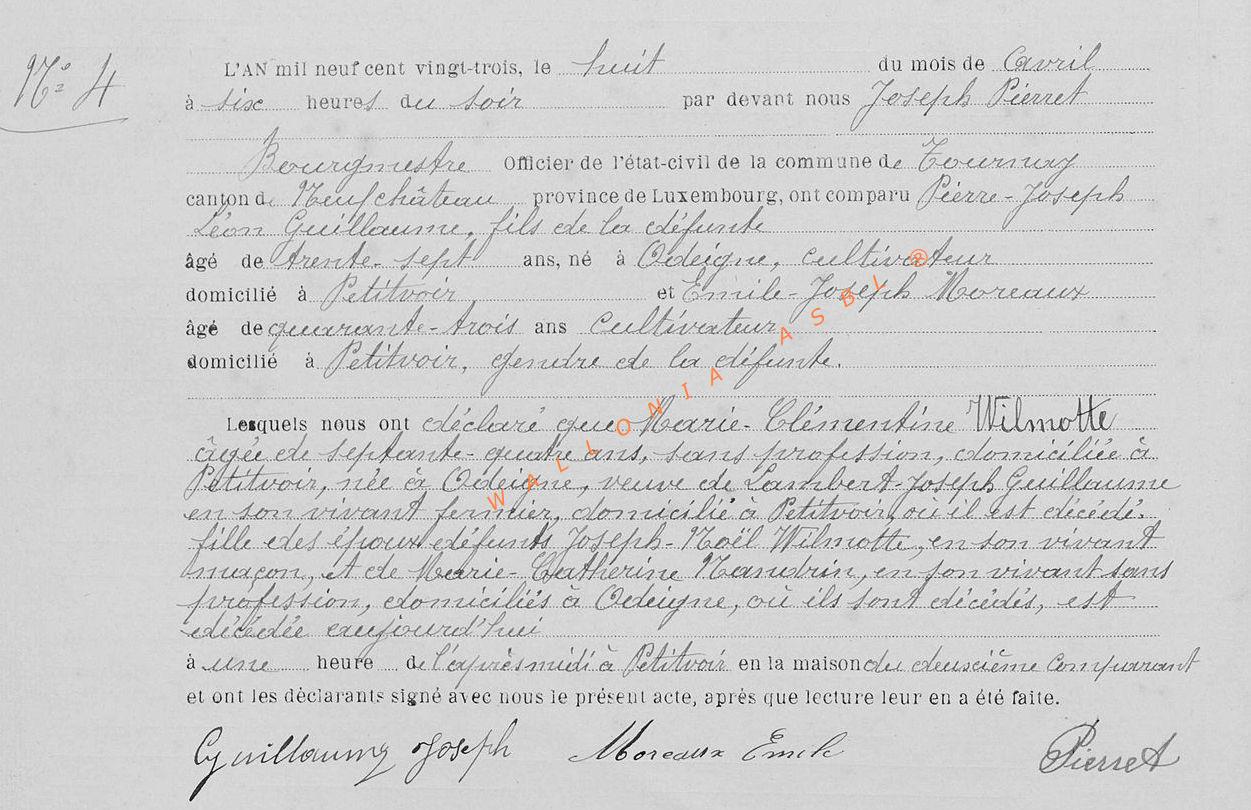 N° 4
L'AN mil neuf cent vingt-trois, le huit du mois de avril
à six heures du soir par devant nous Joseph Pierret
Bourgmestre Officier de l'état-civil de la commune de Tournay
canton de Neufchâteau province de Luxembourg, ont comparu Pierre-Joseph
Léon Guillaume, fils de la défunte
âgé de trente-sept ans, né à Odeigne, cultivateur
domicilié à Petitvoir et Emile-Joseph Moreaux
âgé de quarante-trois ans cultivateur
domicilié à Petitvoir, gendre de la défunte.
Lesquels nous ont déclaré que Marie-Clémentine Wilmotte
âgée de septante-quatre ans, sans profession, domiciliée à
Petitvoir, née à Odeigne, veuve de Lambert-Joseph Guillaume
en son vivant fermier, domicilié à Petitvoir, où il est décédé.
fille des époux défunts Joseph-Noël Wilmotte, en son vivant
maçon, et de Marie-Catherine Nandrin, en son vivant sans
profession, domiciliés à Odeigne, où ils sont décédés, est
décédée aujourd'hui
à une heure de l'après midi à Petitvoir en la maison du deuxième comparant
et ont les déclarants signé avec nous le présent acte, après que lecture leur en a été faite.
Guillaume Joseph Moreaux Emile Pierret
WALLONIA ASBL ®